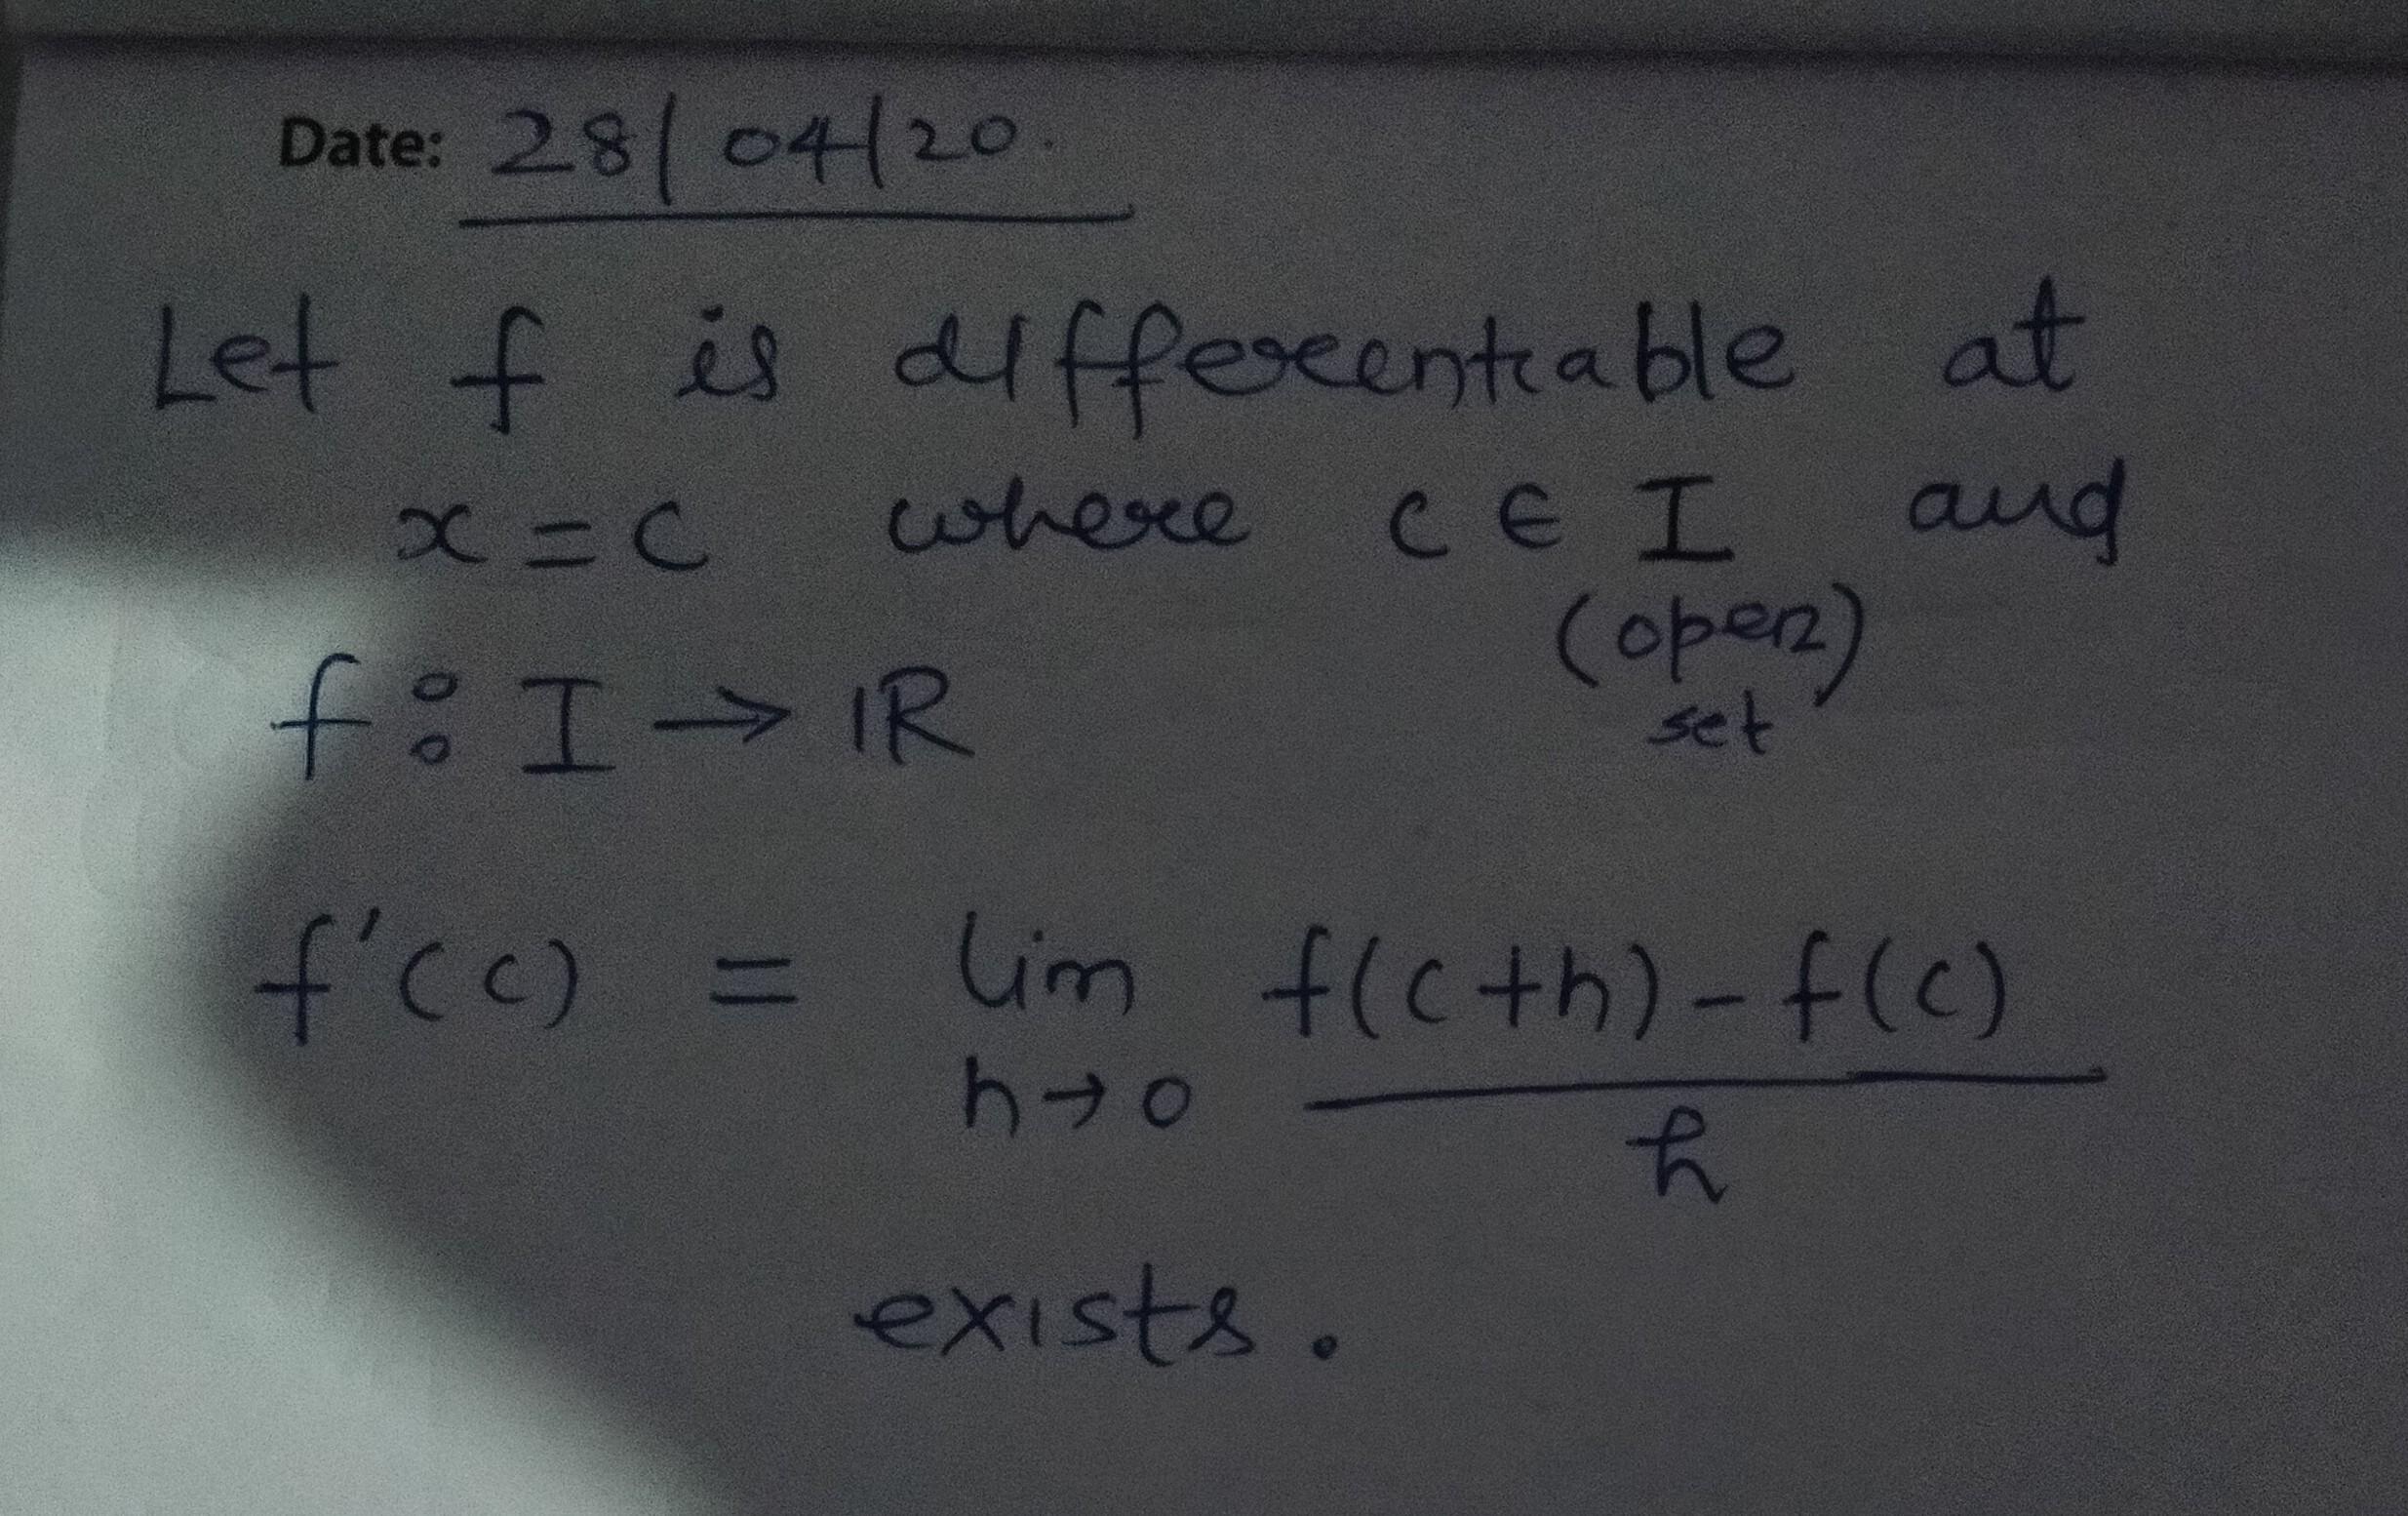 Date: 28/04/20.
Let f is differentiable at
x = c where c ∈ I and
(open)
set
f : I → IR
f'(c) = lim f(c+h) - f(c)
h→0 h
exists.